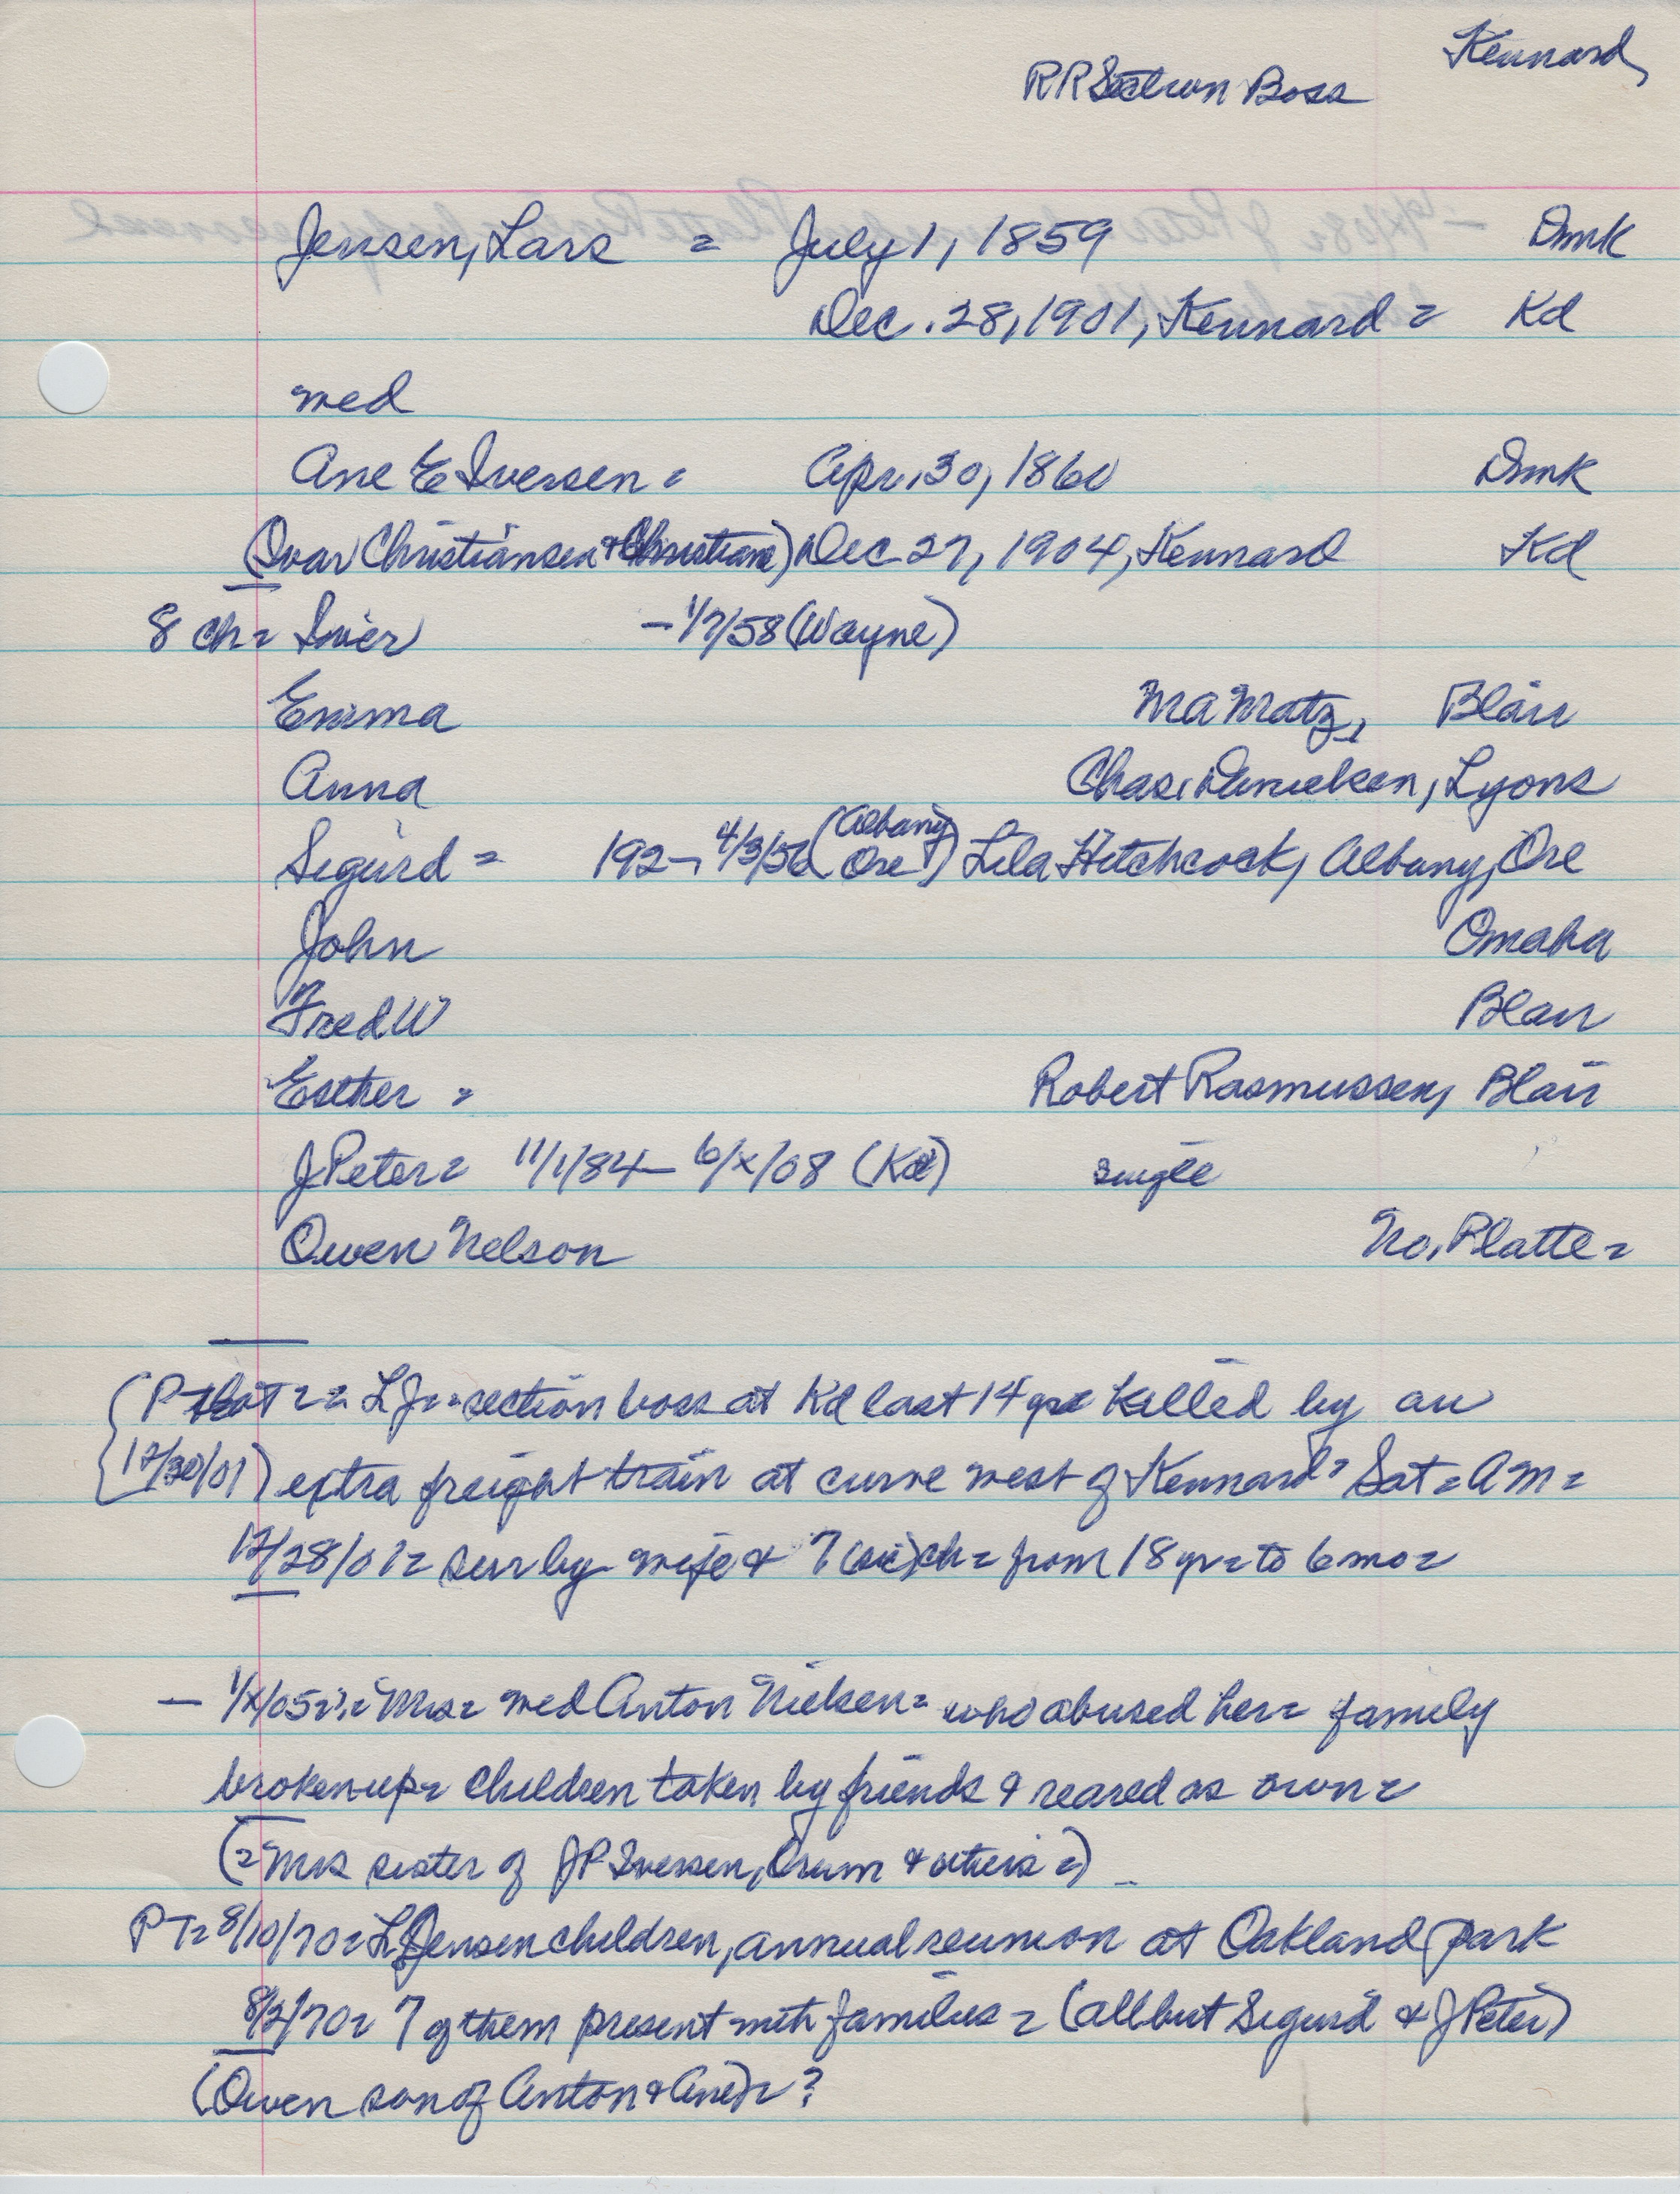 Kennard,
RR Section Boss
Jensen, Lars = July 1, 1859 Dmk
Dec. 28, 1901, Kennard = Kd
med
Ane E Iversen = Apr. 30, 1860 Dmk
(Ivar Christiansen & Christiane) Dec 27, 1904, Kennard Kd
8 ch= Iver - 1/7/58 (Wayne)
Emma MA Matz, Blair
Anna Chas. Danielsen, Lyons
Sigurd = 192-, 4/3/56 (Albany Ore) Lila Hitchcock, Albany, Ore
John Omaha
Fred W Blair
Esther = Robert Rasmussen, Blair
J Peter= 11/1/84 - 6/x/08 (Kd) single
Owen Nelson No. Platte =
(P == L J = section boss at Kd last 14 yrs killed by an
12/30/01) extra freight train at curve west of Kennard = Sat = AM =
12/28/01= sur by wife & 7 (sic) ch= from 18 yr= to 6 mo=
- 1/x/05=:= Mrs= med Anton Nielsen= who abused her= family
broken up= children taken by friends & reared as own=
(=Mrs sister of JP Iversen, Orum & others=)
PT= 8/10/70= L Jensen children, annual reunion at Oakland park
8/2/70= 7 of them present with families = (all but Sigurd & J Peter)
(Owen son of Anton & Ane)= ?